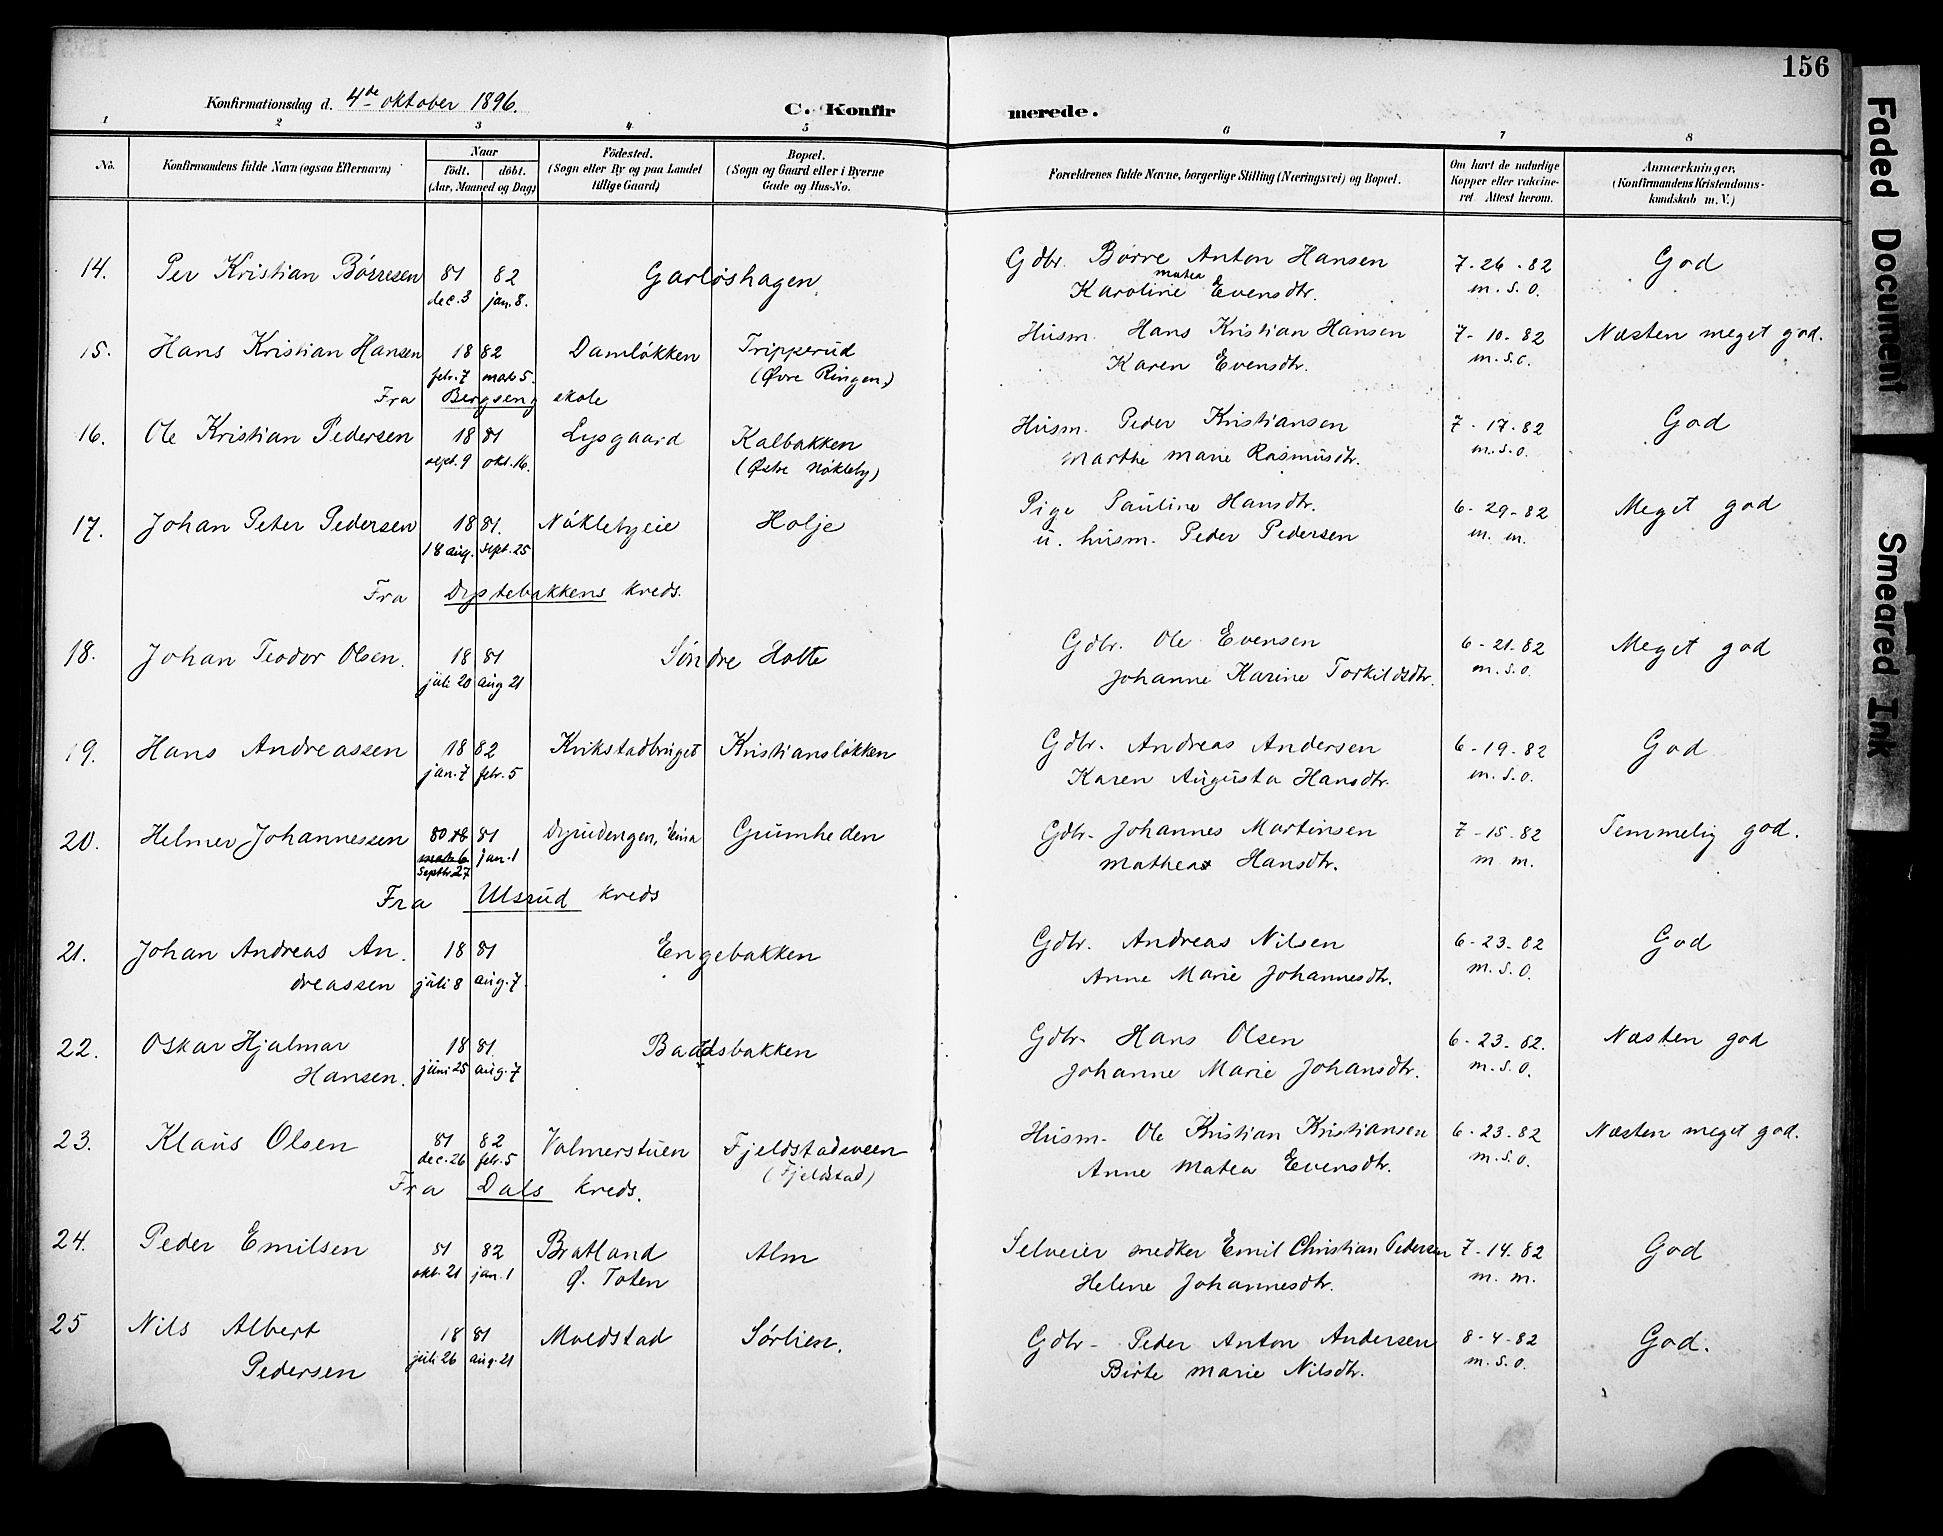 156
Konfirmationsdag d. 4de oktober 1896.
C. Konfirmerede.
1 2 3 4 5 6 7 8
No.
Konfirmandens fulde Navn (ogsaa Efternavn)
Naar
födt. döbt.
(Aar, Maaned og Dag)
Födested.
(Sogn eller By og paa Landet
tillige Gaard)
Bopæl.
(Sogn og Gaard eller i Byerne
Gade og Hus-No.
Forældrenes fulde Navne, borgerlige Stilling (Næringsvei) og Bopæl.
Om havt de naturlige
Kopper eller vakcine-
ret Attest herom.
Anmærkninger,
(Konfirmandens Kristendoms-
kundskab m. V.)
14. Per Kristian Börresen 81 82 Garløshagen Gdbr. Börre Anton Hansen 7-26-82 God
dec. 3 jan. 8. Karoline matea Evensdtr. m. s. o.
15. Hans Kristian Hansen 18 82 Damløkken Tripperud Husm. Hans Kristian Hansen 7-10-82 Næsten meget god.
febr. 7 mars 5. (Øvre Ringen) Karen Evensdtr. m. s. o.
Fra Bergseng skole
16. Ole Kristian Pedersen 18 81 Lysgaard Kalbakken Husm. Peder Kristiansen 7-17-82 God
sept. 9 okt. 16. (Østre Nökleby) Marthe Marie Rasmusdtr. m. s. o.
17. Johan Peter Pedersen 18 81. Nöklebyeie Holje Pige Pauline Hansdtr. 6-29-82 Meget god
18 aug. sept. 25 u. husm. Peder Pedersen m. m.
Fra Dystebakkens kreds.
18. Johan Teodor Olsen. 18 81 Söndre Hotte Gdbr. Ole Evensen 6-21-82 Meget god
juli 20 aug 21 Johanne Karine Torkildsdtr. m. s. o.
19. Hans Andreassen 18 82 Krikstadbruget Kristiansløkken Gdbr. Andreas Andersen 6-19-82 God
jan. 7 febr. 5 Karen Augusta Hansdtr. m. s. o.
20. Helmer Johannessen 80 81 Eina Grumheden Gdbr. Johannes Martinsen 7-15-82 Temmelig god.
septbr. 27 jan. 1 Mathea Hansdtr. m. m.
Fra Ulsrud kreds
21. Johan Andreas An. 18 81 Engebakken Gdbr. Andreas Nilsen 6-23-82 God
dreassen juli 8 aug. 7. Anne Marie Johannesdtr. m. s. o.
22. Oskar Hjalmar 18 81 Baadsbakken Gdbr. Hans Olsen 6-23-82. Næsten god
Hansen. juni 25 aug. 7 Johanne Marie Johansdtr. m. s. o.
23. Klaus Olsen 81 82 Valmerstuen Fjeldstadsveen Husm. Ole Kristian Kristiansen 6-23-82 Næsten meget god.
dec. 26 febr. 5 (Fjeldstad) Anne Matea Evensdtr. m. s. o.
Fra Dals kreds.
24. Peder Emilsen 81 82 Bratland Alm Selveier snedker Emil Christian Pedersen 7-14-82 God
okt. 21 jan. 1 Ø. Toten Helene Johannesdtr. m. m.
25 Nils Albert 18 81 Moldstad Sørlien. Gdbr - Peder Anton Andersen 8-4-82 God.
Pedersen juli 26 aug. 21 Birte Marie Nilsdtr. m. s. o.
Faded Document
Smeared Ink